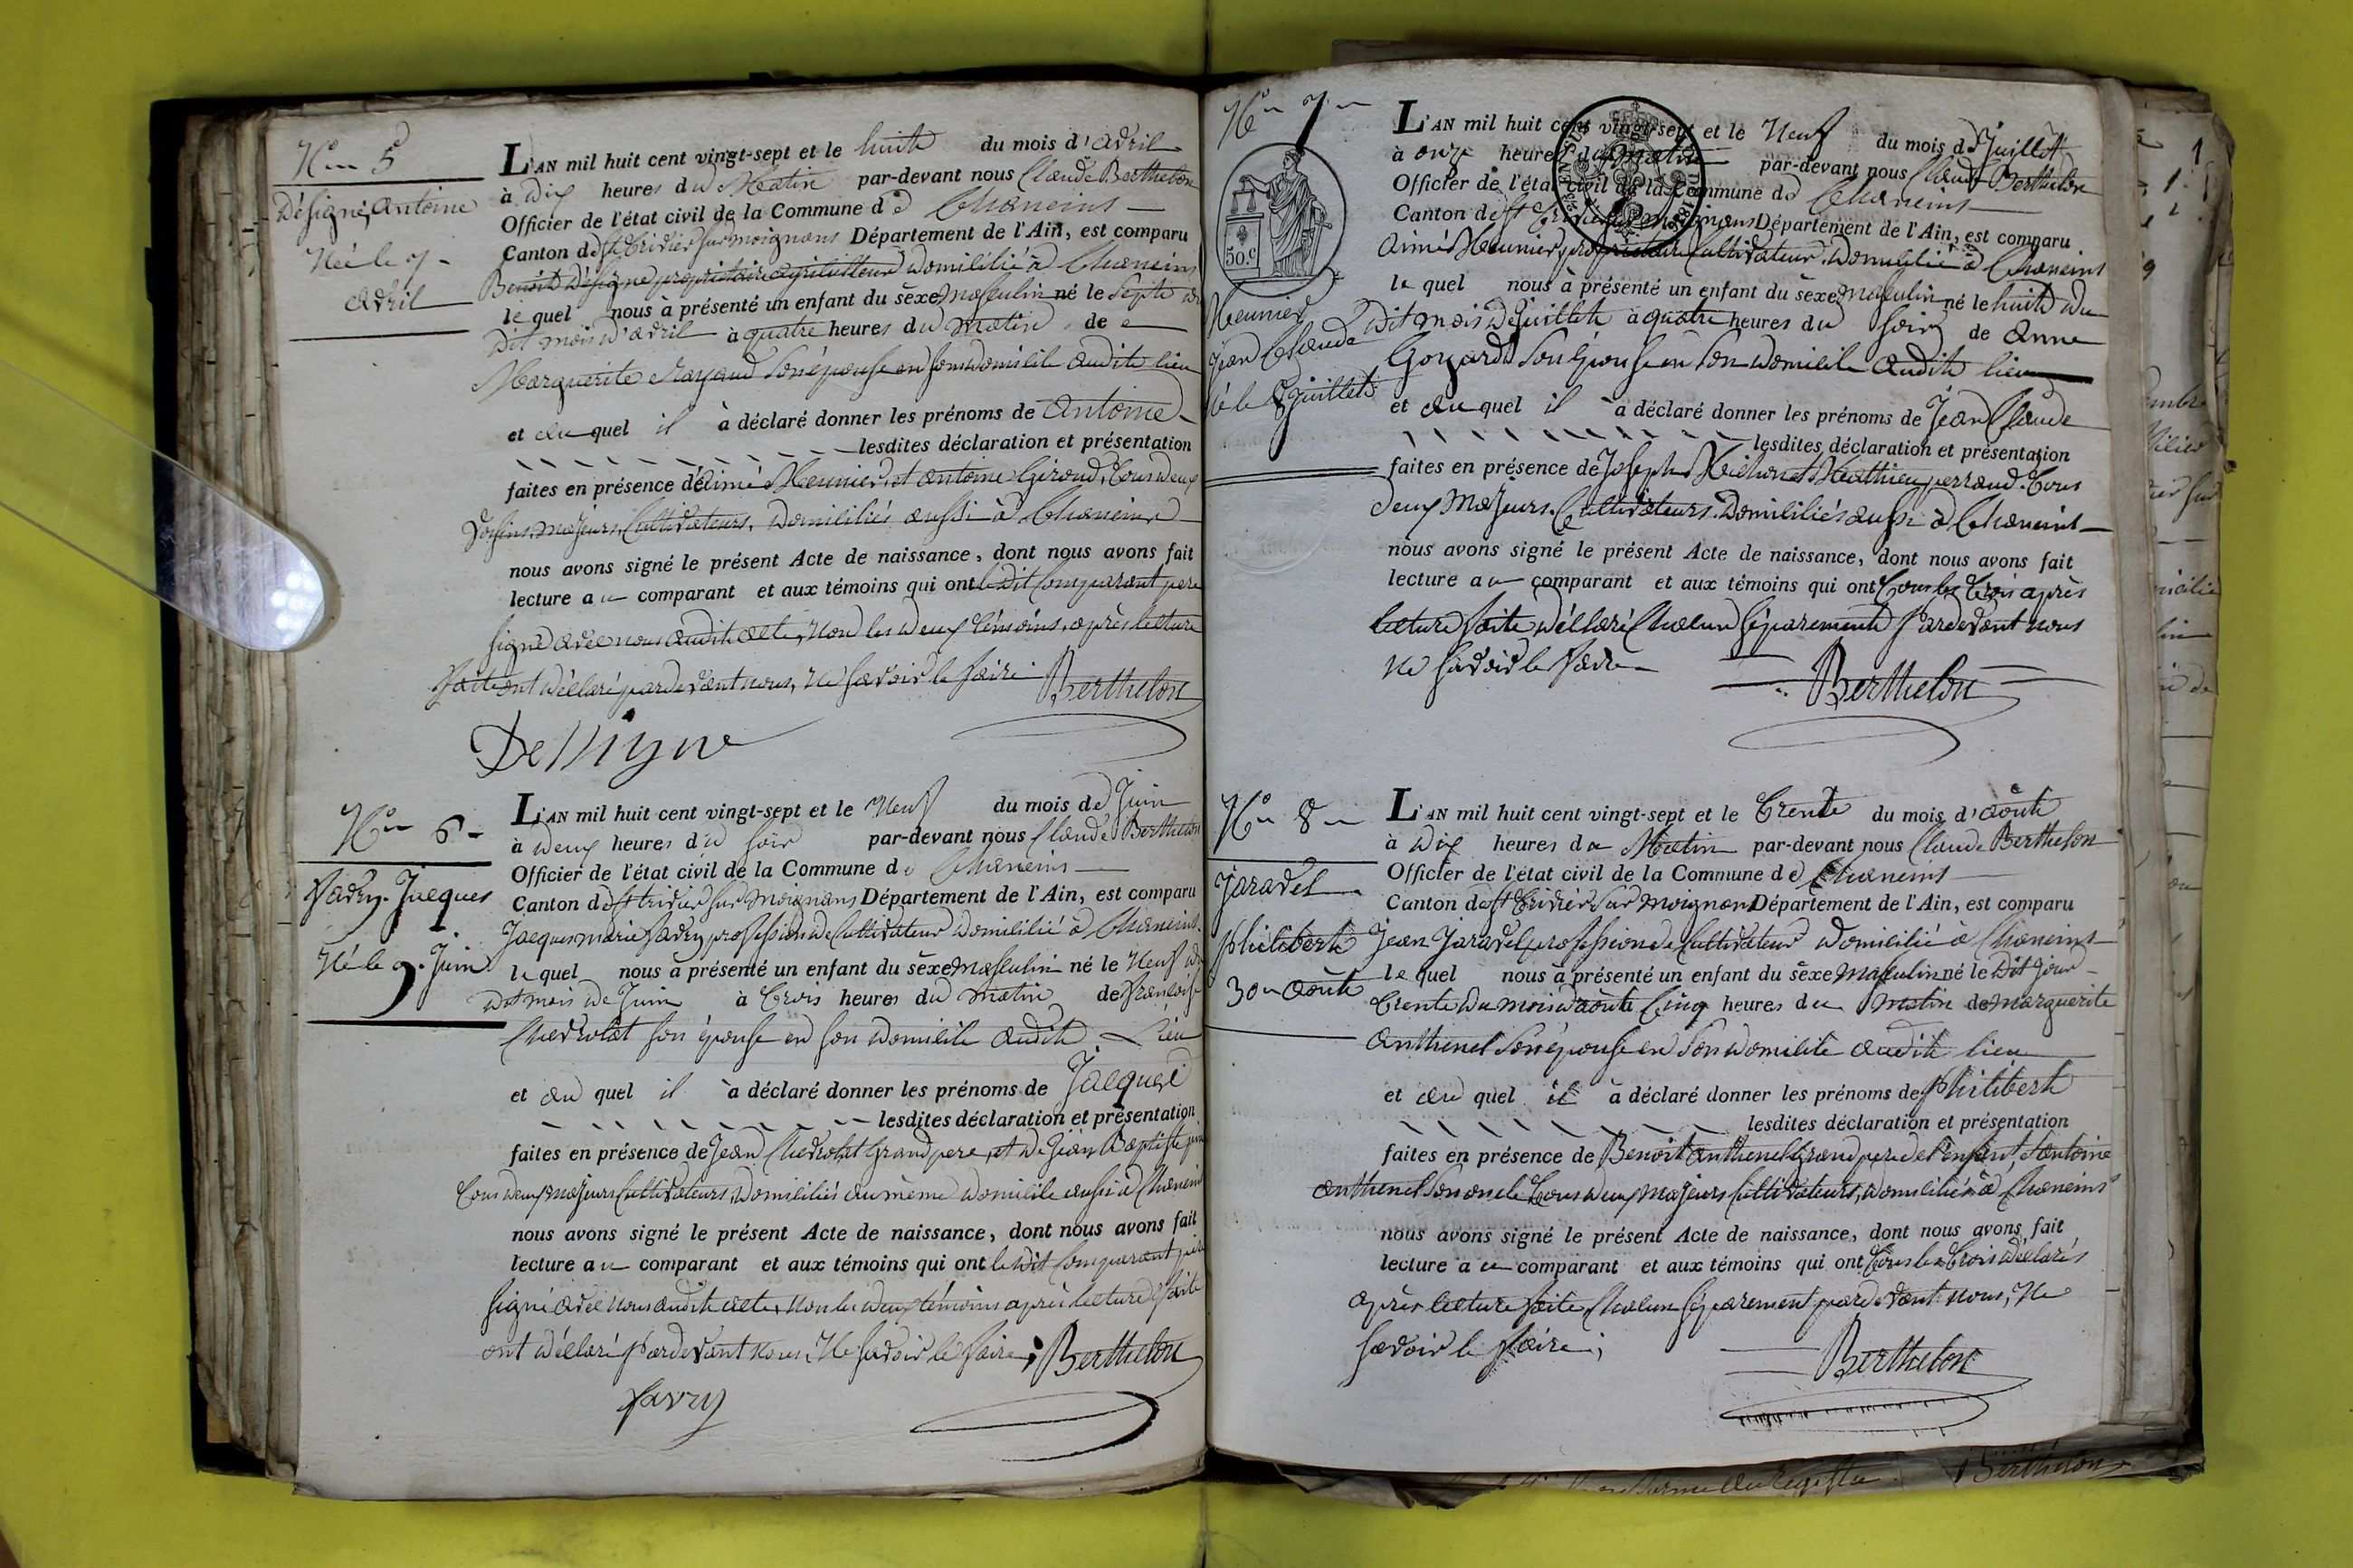 N° 5
Désigne, Antoine
Né le 7
avril
L'AN mil huit cent vingt-sept et le huite du mois d'avril
à Dix heures du Matin par-devant nous Claude Berthelon
Officier de l'état civil de la Commune de Chaneins
Canton de St trivier sur moignans Département de l'Ain, est comparu
Benoit Désigne propriétaire agriculteur domicilié à Chaneins
lequel nous à présenté un enfant du sèxe Masculin né le septe du
dit mois d'avril à quatre heures du matin de
Marguerite Rayaud son épouse en son domicile audit lieu
et du quel il à déclaré donner les prénoms de Antoine
lesdites déclaration et présentation
faites en présence de Aimé Meunier et antoine Giroud, tous deux
voisins, majeurs, Cultivateurs, Domiciliés aussi à Chaneins
nous avons signé le présent Acte de naissance, dont nous avons fait
lecture au comparant et aux témoins qui ont le dit Comparant père
signé avec nous audit acte, Non les deux témoins, après lecture
faite ont déclaré pardevant nous, Ne savoir le faire
Berthelon
Dessigne
N° 6
favry Jacques
Né le 9 Juin
L'AN mil huit cent vingt-sept et le Neuf du mois de Juin
à deux heures du soir par-devant nous Claude Berthelon
Officier de l'état civil de la Commune de Chaneins
Canton de St trivier sur Moignans Département de l'Ain, est comparu
Jacques marie favry profession de Cultivateur domicilié à Chaneins
lequel nous à présenté un enfant du sèxe Masculin né le Neuf du
dit mois de Juin à trois heures du matin de françoise
Chevrolat son épouse en son domicile audit Lieu
et du quel il à déclaré donner les prénoms de Jacques
lesdites déclaration et présentation
faites en présence de Jean Chevrolat Grand pere, et de Jean Baptiste
tous deux majeurs Cultivateurs, domiciliés au même domicile aussi à Chaneins
nous avons signé le présent Acte de naissance, dont nous avons fait
lecture au comparant et aux témoins qui ont le dit Comparant père
signé avec nous audit acte, non les deux témoins après lecture faite
ont déclaré pardevant nous, Ne savoir le faire; Berthelon
favry
N° 7
50.c
Meunier
Jean Claude
Né le 8 Juillet
L'AN mil huit cent vingt-sept et le Neuf du mois de Juillet
à onze heures du Matin par-devant nous Claude Berthelon
Officier de l'état civil de la Commune de Chaneins
Canton de St trivier sur moignans Département de l'Ain, est comparu
Aimé Meunier propriétaire Cultivateur Domicilié à Chaneins
le quel nous à présenté un enfant du sèxe Masculin né le huite du
Dit mois de Juillet à quatre heures du soir de Anne
Goyard son épouse en son domicile audit lieu
et du quel il à déclaré donner les prénoms de Jean Claude
lesdites déclaration et présentation
faites en présence de Joseph Michon et Mathieu perraud. tous
deux Majeurs. Cultivateurs. Domiciliés aussi à Chaneins
nous avons signé le présent Acte de naissance, dont nous avons fait
lecture au comparant et aux témoins qui ont tous les trois après
lecture faite déclaré Chacun séparement pardevant nous
Ne savoir le faire
Berthelon
N° 8
Jaravel
philibert
30 Août
L'AN mil huit cent vingt-sept et le trente du mois d'août
à Dix heures du Matin par-devant nous Claude Berthelon
Officier de l'état civil de la Commune de Chaneins
Canton de St trivier sur moignans Département de l'Ain, est comparu
Jean Jaravel profession de Cultivateur domicilié à Chaneins
le quel nous à présenté un enfant du sèxe Masculin né le Dit jour
trente du mois d'août Cinq heures du matin de marguerite
anthenel son épouse en son domicile audit lieu
et du quel il à déclaré donner les prénoms de philibert
lesdites déclaration et présentation
faites en présence de Benoit anthenel Grand pere de l'enfant, d'antoine
anthenel son oncle tous deux majeurs Cultivateurs, domiciliés à Chaneins
nous avons signé le présent Acte de naissance, dont nous avons fait
lecture au comparant et aux témoins qui ont tous les trois déclarés
après lecture faite, Chacun séparement pardevant nous, Ne
savoir le faire;
Berthelon
Berthelon